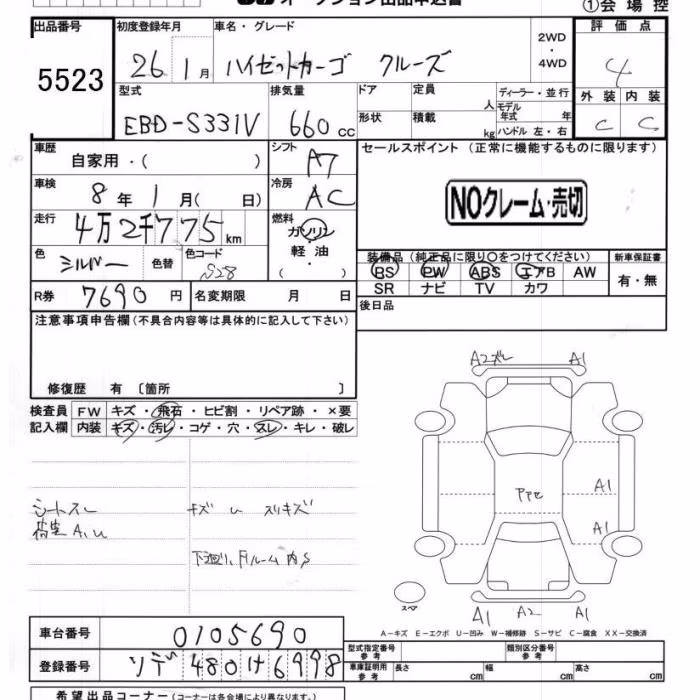 オークション出品申込書
①会場控
出品番号
5523
初度登録年月
26 1月
車名・グレード
ハイゼットカーゴ クルーズ
2WD
・
4WD
評価点
4
型式
EBD-S331V
排気量
660 cc
ドア
定員
人
形状
積載
kg
ディーラー・並行
モデル年式 年
ハンドル 左・右
外装 内装
C C
車歴
自家用・( )
シフト
A7
車検
8年 1月( 日)
冷房
AC
走行
4万2千775 km
燃料
ガソリン
軽油
・
( )
色
シルバー
色替
色コード
S28
R券
7690 円
名変期限 月 日
セールスポイント(正常に機能するものに限ります)
NOクレーム・売切
装備品(純正品に限り○をつけてください)
PS PW ABS エアB AW
SR ナビ TV カワ
新車保証書
有・無
後日品
注意事項申告欄(不具合内容等は具体的に記入して下さい)
修復歴 有〔箇所 〕
検査員 FW キズ・飛石・ヒビ割・リペア跡・×要
記入欄 内装 キズ・汚レ・コゲ・穴・スレ・キレ・破レ
シートスレ
荷室A,U
キズ U スリキズ
下廻り、Fルーム内S
A2ズレ A1
A1
A1
A1 A2 A1
スペア
A-キズ E-エクボ U-凹み W-補修跡 S-サビ C-腐食 XX-交換済
車台番号
0105690
登録番号
ソデ480け6998
型式指定番号参考
類別区分番号参考
車庫証明用参考
長さ cm 幅 cm 高さ cm
希望出品コーナー(コーナーは各会場により異なります。)